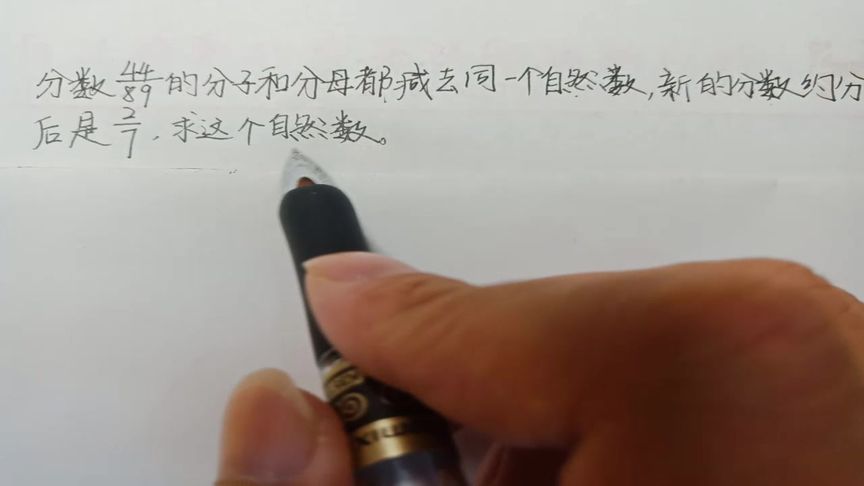 分数44/89的分子和分母都减去同一个自然数,新的分数约分
后是2/7,求这个自然数。